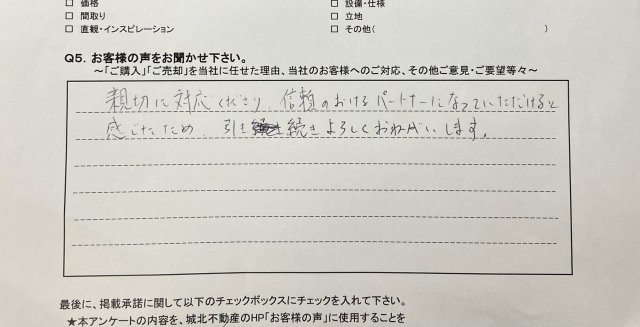 □ 価格
□ 設備・仕様
□ 間取り
□ 立地
□ 直観・インスピレーション
□ その他( )
Q5. お客様の声をお聞かせ下さい。
~「ご購入」「ご売却」を当社に任せた理由、当社のお客様へのご対応、その他ご意見・ご要望等々~
親切に対応くださり 信頼のおけるパートナーになっていただけると
感じたため 引き続きよろしくおねがいします。
最後に、掲載承諾に関して以下のチェックボックスにチェックを入れて下さい。
★本アンケートの内容を、城北不動産のHP「お客様の声」に使用することを